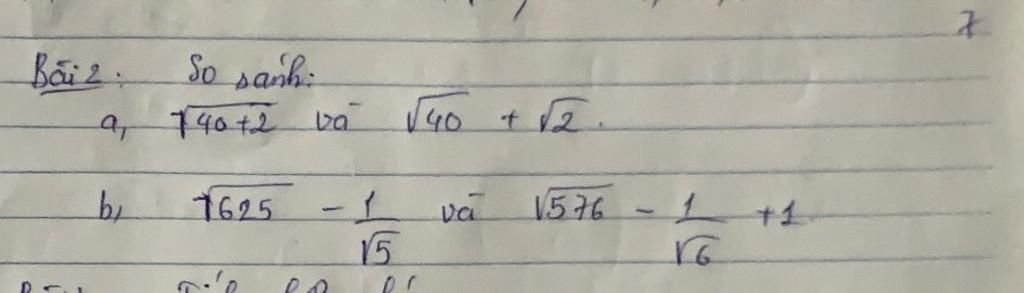 7
Bài 2: So sánh:
a, √(40+2) và √40 + √2.
b, √625 - 1/√5 và √576 - 1/√6 + 1